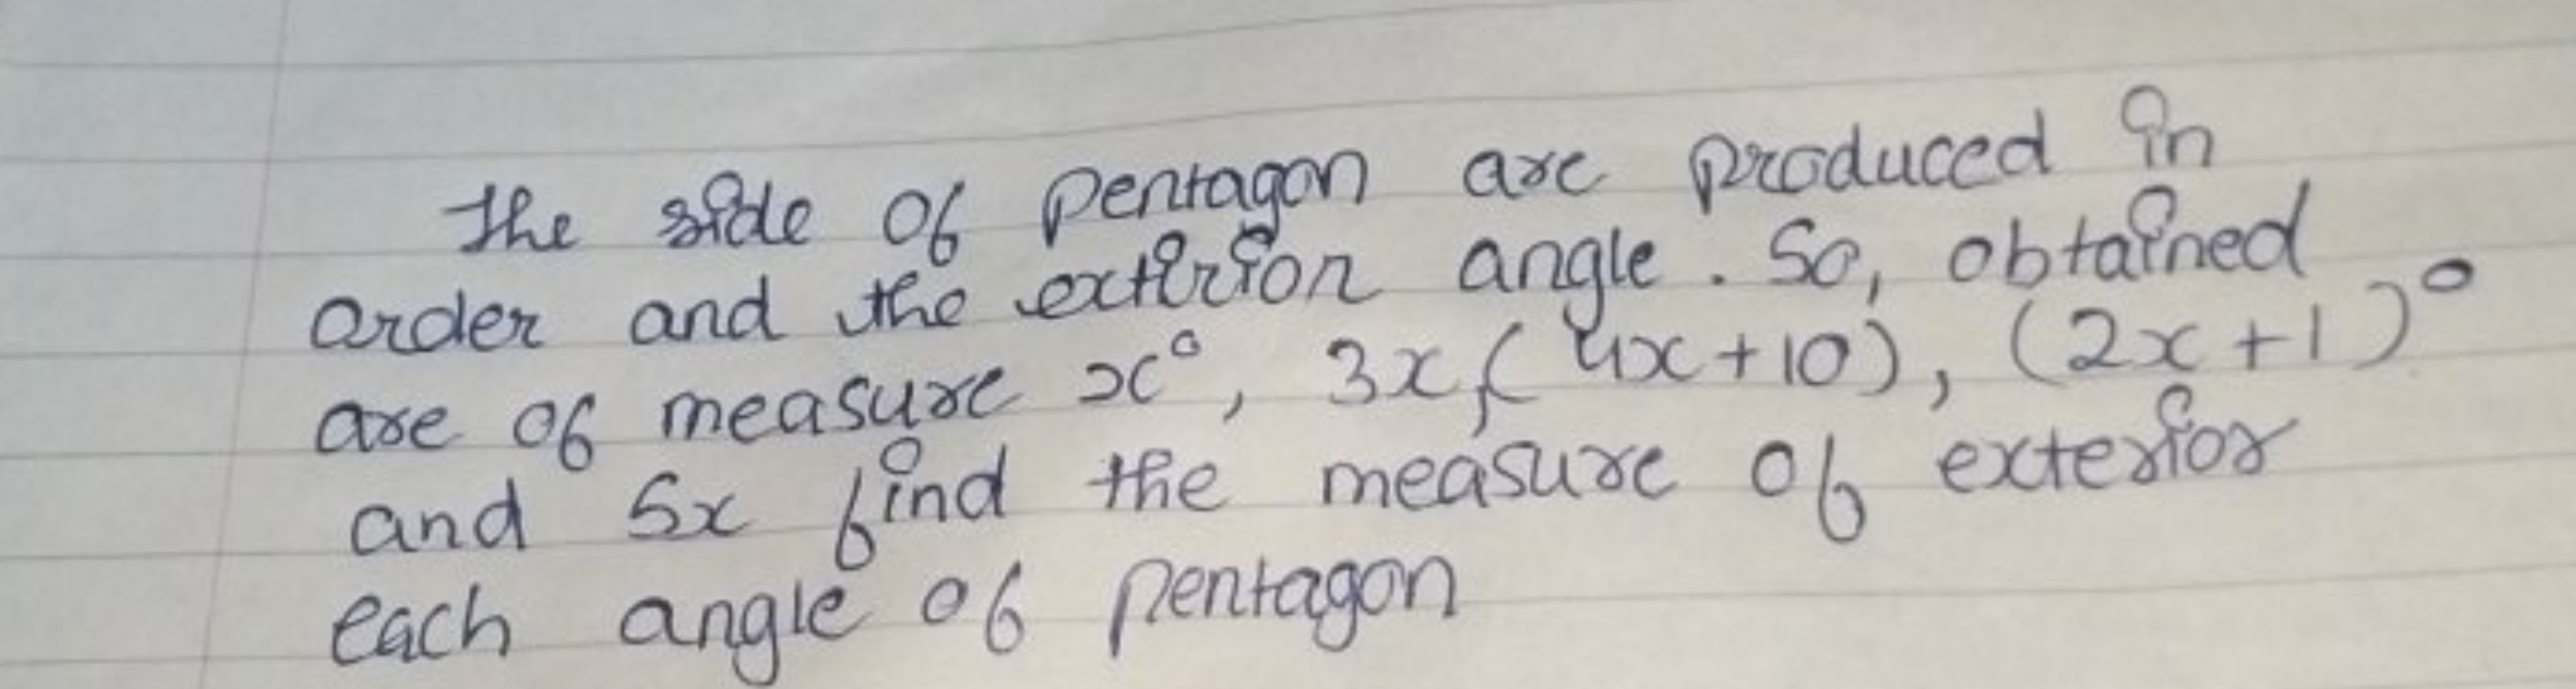 the side of pentagon are produced in
order and the extirior angle. So, obtained
are of measure x°, 3x, (4x+10), (2x+1)°
and 5x find the measure of exterior
each angle of pentagon